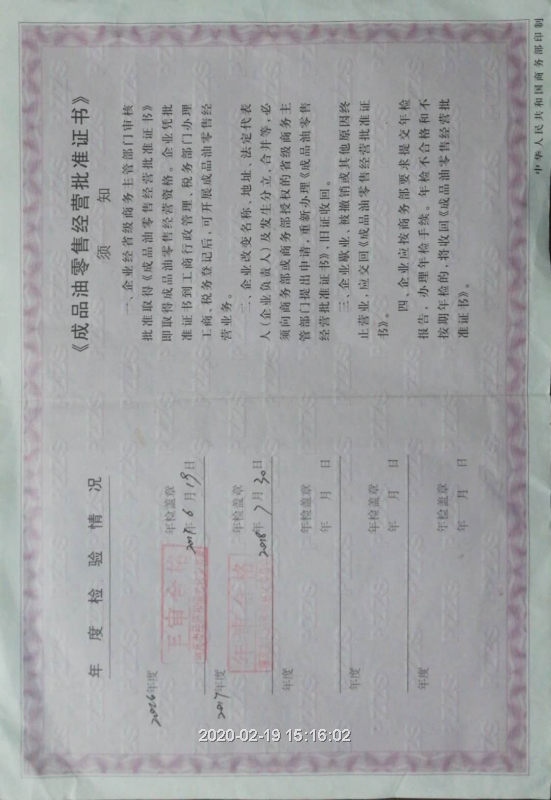 年度检验情况
2016年度
年审合格
年检盖章
2017年6月19日
2017年度
年审合格
年检盖章
2018年7月30日
年度
年检盖章
年 月 日
年度
年检盖章
年 月 日
年度
年检盖章
年 月 日
《成品油零售经营批准证书》
须知
一、企业经省级商务主管部门审核
批准取得《成品油零售经营批准证书》
即取得成品油零售经营资格。企业凭批
准证书到工商行政管理、税务部门办理
工商、税务登记后,可开展成品油零售经
营业务。
二、企业改变名称、地址、法定代表
人(企业负责人)及发生分立、合并等,必
须向商务部或商务部授权的省级商务主
管部门提出申请,重新办理《成品油零售
经营批准证书》,旧证收回。
三、企业歇业、被撤销或其他原因终
止营业,应交回《成品油零售经营批准证
书》。
四、企业应按商务部要求提交年检
报告,办理年检手续。年检不合格和不
按期年检的,将收回《成品油零售经营批
准证书》。
中华人民共和国商务部印制
2020-02-19 15:16:02